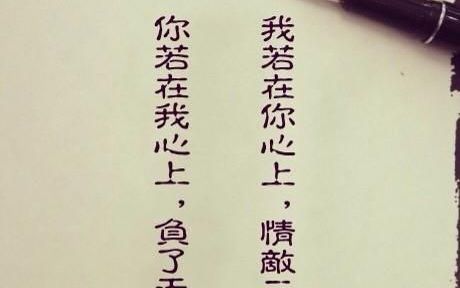 我若在你心上，情敵
你若在我心上，負了